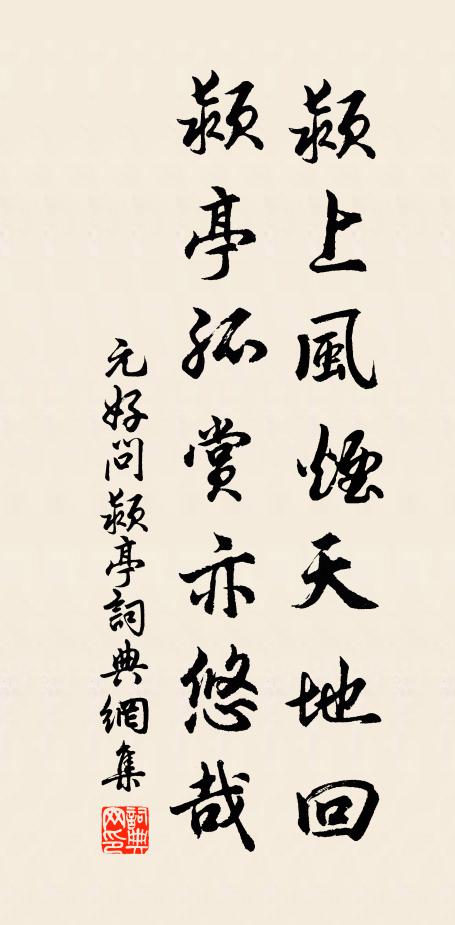 潁上風煙天地回
潁亭孤賞亦悠哉
元好問潁亭詞典網集
詞典网印